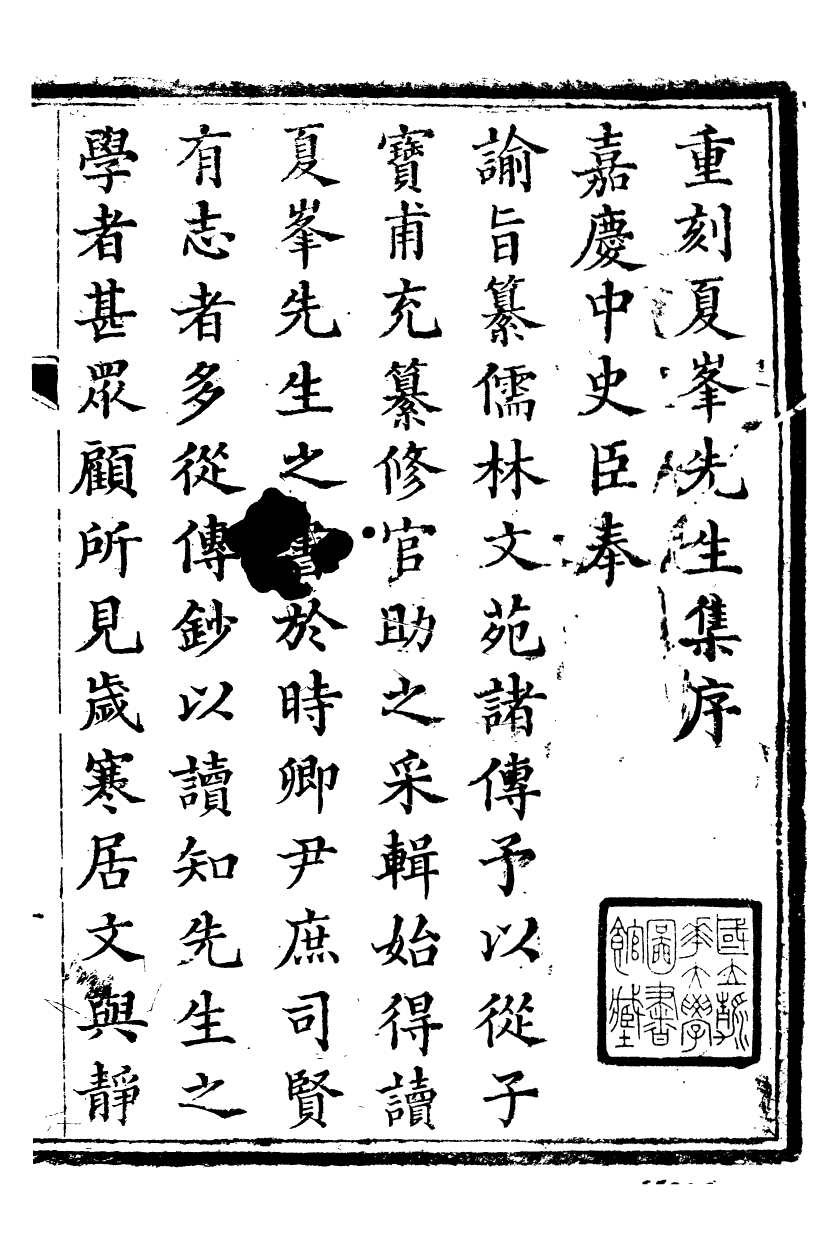 重刻夏峯先生集序
嘉慶中史臣奉
諭旨纂儒林文苑諸傳予以從子
寶甫充纂修官助之采輯始得讀
夏峯先生之書於時卿尹庶司賢
有志者多從傳鈔以讀知先生之
學者甚眾顧所見歲寒居文與靜
國立清
華大學
圖書
館藏